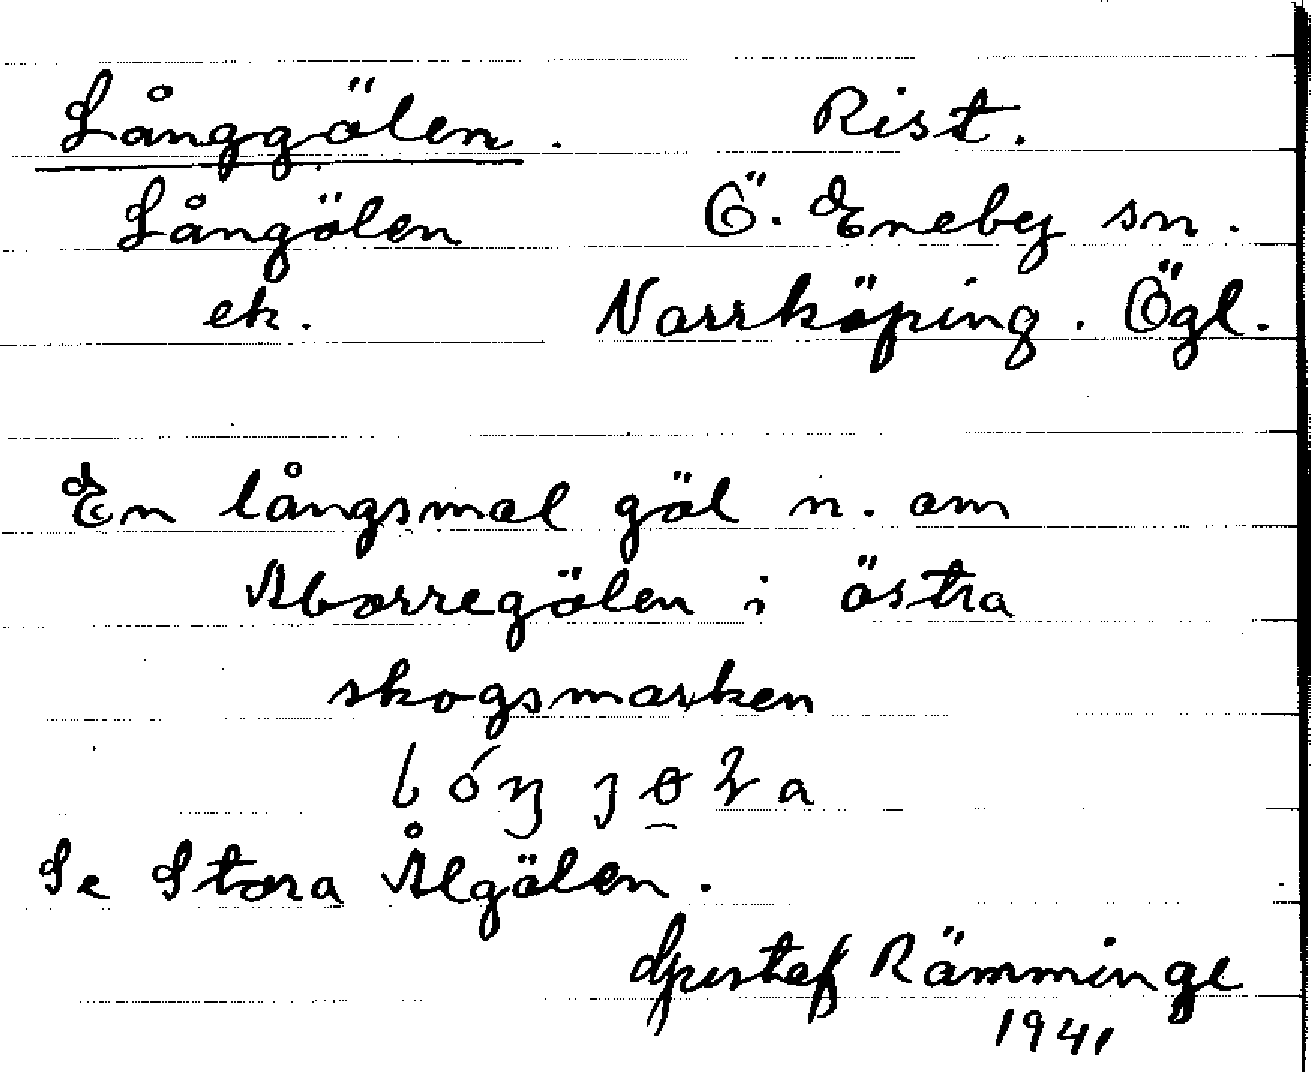 Långgölen. Rist.
Långölen Ö. Eneby sn.
ek. Norrköping. Ögl.
En långsmal göl n. om
Aborregölen i östra
skogsmarken
Se Stora Ålgölen.
Gustaf Rämminge
1941